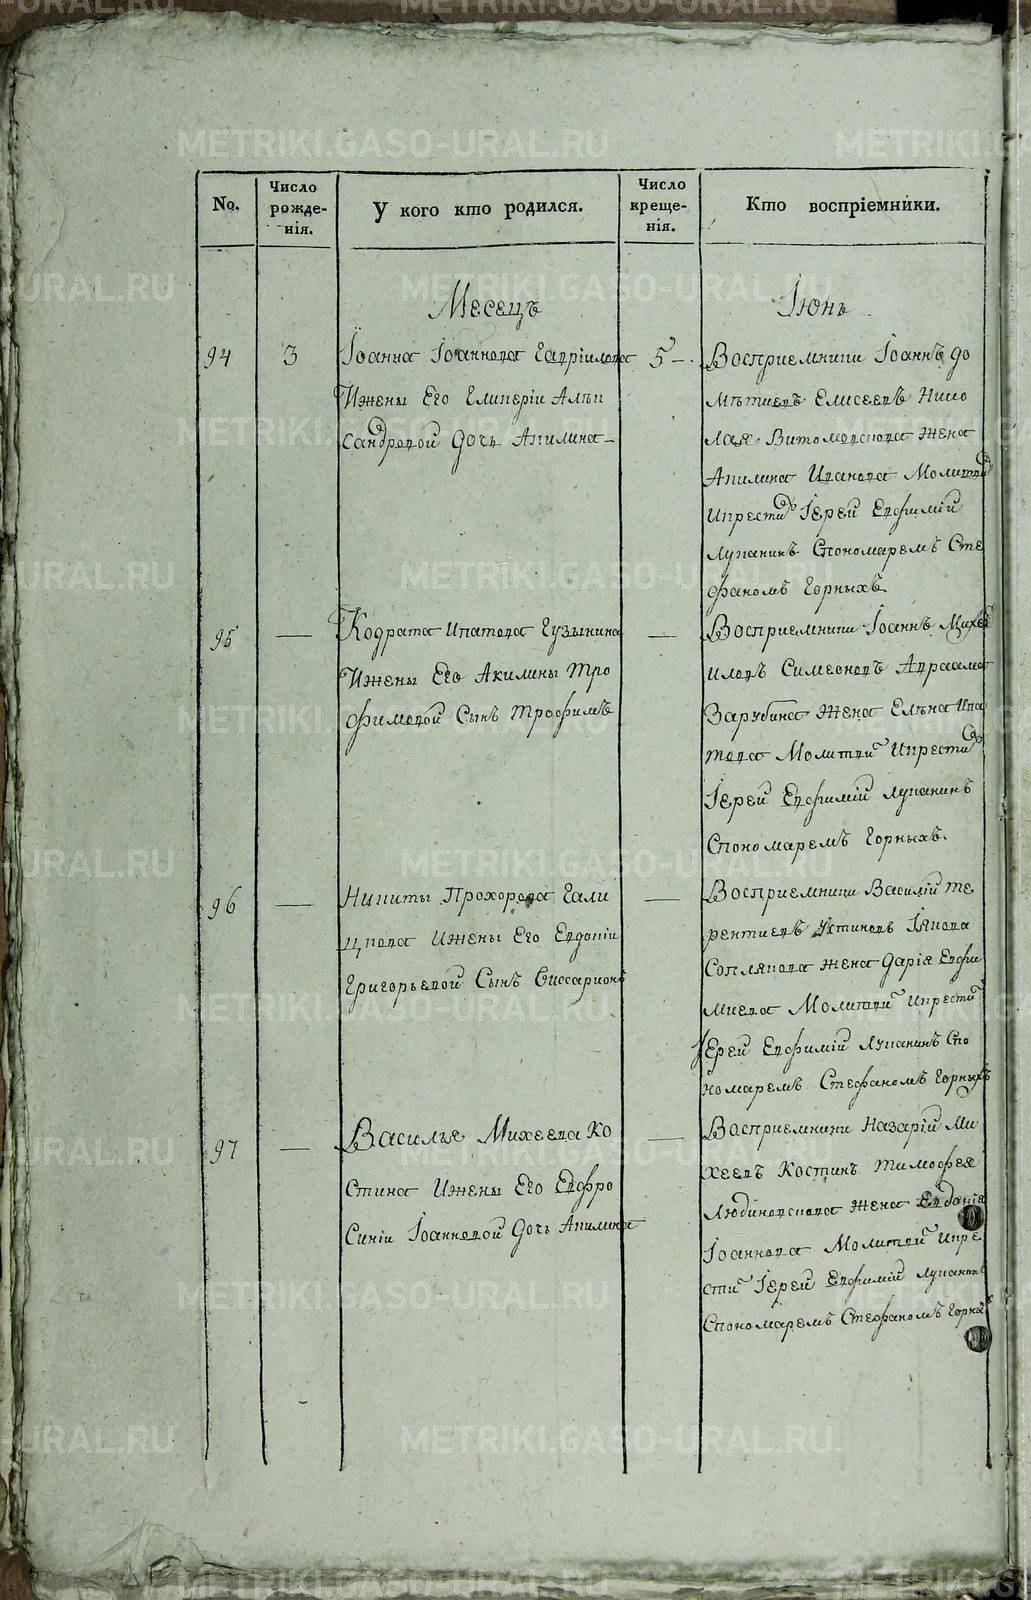 METRIKI.GASO-URAL.RU
No.
Число рожде-нія.
У кого кто родился.
Число креще-нія.
Кто воспріемники.
Месецъ
Іюнь
94
3
Іоанна Іоаннова Гавріилова
Ижены Его Гликеріи Алек
сандровой дочь Акилина
5
Восприемники Іоаннъ До
мѣтиевъ Елисеевъ Нико
лая Витоморскова жена
Акилина Иванова Молитви
Икрести Іерей Евфимій
ЛукапинъСпономаремъ Сте
фаномъ Горныхъ
95
—
Кодрата Ипатова Гузынина
Ижены Его Акилины Тро
фимовой Сынъ Трофимъ
—
Восприемники Іоаннъ Миха
иловъ Симеоновъ Авраама
Зарубина Жена Елѣна Ипа
това Молитви Икрести
Іерей Евфимій Лукапинъ
Спономаремъ Горныхъ.
96
—
Никиты Прохорова Гали
цкова Ижены Его Евдокіи
Григорьевой Сынъ Виссаріонъ
—
Восприемники Василій Те
рентиевъ Устиновъ Іякова
Соплякова жена Дарія Евфи
миева Молитви Икрести
Іерей Евфимій Лукапинъ Спо
номаремъ Стефаномъ Горныхъ
97
—
Василья Михеева Ко
стина Ижены Его Евфро
Синіи Іоанновой Дочь Акилина
—
Восприемники Назарій Ми
хеевъ Костинъ Тимофея
Любиковскова жена Евдокія
Іоаннова Молитви Икре
сти Іерей Евфимій Лукапинъ
Спономаремъ Стефаномъ Горных